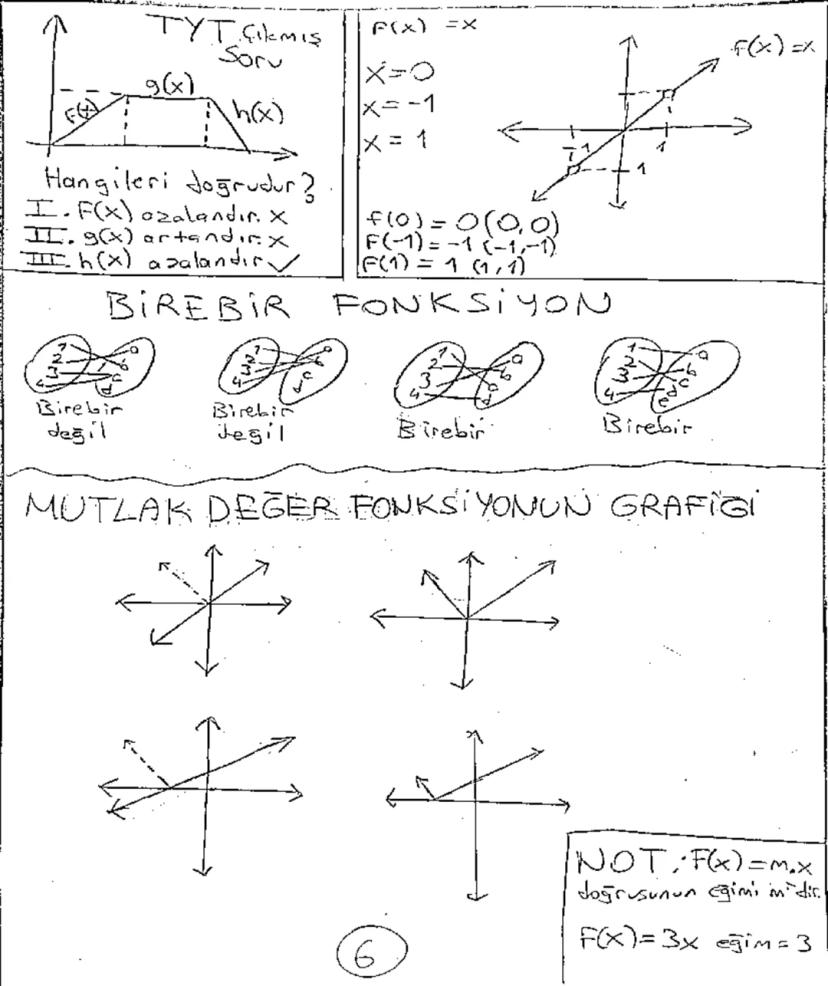 TYT Çıkmış
Soru
f(x)
g(x)
h(x)
Hangileri doğrudur?
I. F(x) azalandır. x
II. g(x) artandır. x
III. h(x) azalandır ✓
F(x) = x
x=0
x=-1
x=1
f(x)=x
1
-1
-1
1
f(0) = 0 (0,0)
F(-1) = -1 (-1,-1)
F(1) = 1 (1,1)
BİREBİR FONKSİYON
1 2 3 4 a b c d
Birebir
değil
1 2 3 4 a b c d
Birebir
değil
1 2 3 4 a b c d
Birebir
1 2 3 4 a b c d e
Birebir
MUTLAK DEĞER FONKSİYONUN GRAFİĞİ
NOT: F(x) = m.x
doğrusunun eğimi m'dir.
F(x) = 3x eğim = 3
6